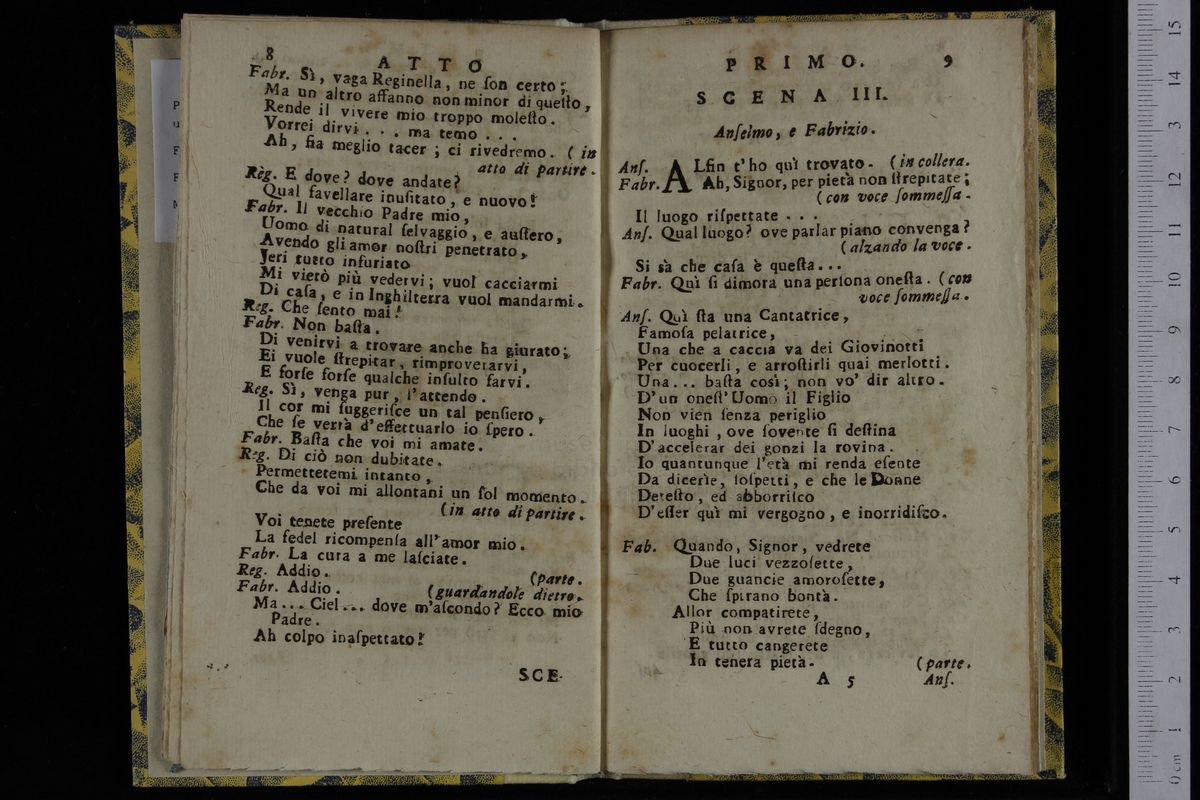 8
ATTO
Fabr. Sì, vaga Reginella, ne ſon certo;
Ma un altro affanno non minor di queſto,
Rende il vivere mio troppo moleſto.
Vorrei dirvi . . . ma temo . . .
Ah, fia meglio tacer; ci rivedremo. (in
atto di partire.
Règ. E dove? dove andate?
Qual favellare inuſitato, e nuovo!
Fabr. Il vecchio Padre mio,
Uomo di natural ſelvaggio, e auſtero,
Avendo gli amor noſtri penetrato,
Jeri tutto infuriato
Mi vietò più vedervi; vuol cacciarmi
Di caſa, e in Inghilterra vuol mandarmi.
Reg. Che ſento mai!
Fabr. Non baſta.
Di venirvi a trovare anche ha giurato;
Ei vuole ſtrepitar, rimproverarvi,
E forſe forſe qualche inſulto farvi.
Reg. Sì, venga pur, l'attendo.
Il cor mi ſuggeriſce un tal penſiero,
Che ſe verrà d'effettuarlo io ſpero.
Fabr. Baſta che voi mi amate.
Reg. Di ciò non dubitate.
Permettetemi intanto,
Che da voi mi allontani un ſol momento.
(in atto di partire.
Voi tenete preſente
La fedel ricompenſa all'amor mio.
Fabr. La cura a me laſciate.
Reg. Addio. (parte.
Fabr. Addio. (guardandole dietro.
Ma... Ciel... dove m'aſcondo? Ecco mio
Padre.
Ah colpo inaſpettato!
SCE-
PRIMO. 9
SCENA III.
Anſelmo, e Fabrizio.
Anſ. ALfin t'ho quì trovato. (in collera.
Fabr. Ah, Signor, per pietà non ſtrepitate;
(con voce ſommeſſa.
Il luogo riſpettate . . .
Anſ. Qual luogo? ove parlar piano convenga?
(alzando la voce.
Si sà che caſa è queſta...
Fabr. Quì ſi dimora una perſona oneſta. (con
voce ſommeſſa.
Anſ. Quì ſta una Cantatrice,
Famoſa pelatrice,
Una che a caccia va dei Giovinotti
Per cuocerli, e arroſtirli quai merlotti.
Una... baſta così; non vo' dir altro.
D'un oneſt'Uomo il Figlio
Non vien ſenza periglio
In luoghi, ove ſovente ſi deſtina
D'accelerar dei gonzi la rovina.
Io quantunque l'età mi renda eſente
Da dicerìe, ſoſpetti, e che le Donne
Deteſto, ed abborriſco
D'eſſer quì mi vergogno, e inorridiſco.
Fab. Quando, Signor, vedrete
Due luci vezzoſette,
Due guancie amoroſette,
Che ſpirano bontà.
Allor compatirete,
Più non avrete ſdegno,
E tutto cangerete
In tenera pietà. (parte.
A 5 Anſ.